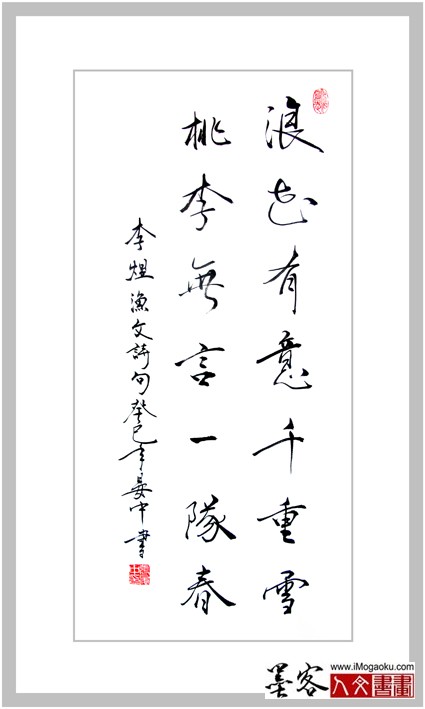 浪花有意千重雪
桃李無言一隊春
李煜漁父詩句癸巳年中書
墨客
www.iMogaoku.com
人文書畫